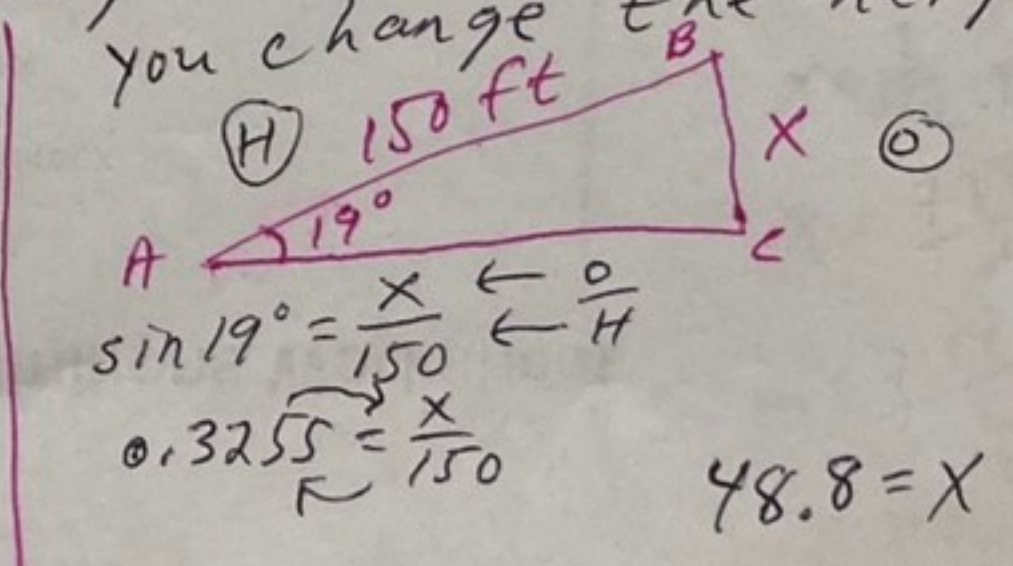 you change the
B
H 150 ft X O
19°
A C
sin 19° = X/150 ← O/H
0.3255 = X/150
48.8 = X